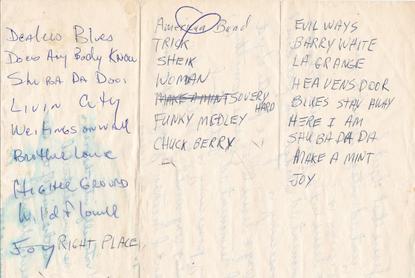 Dealers Blues
Does Any Body Know
Shu Ba Da Doo
Livin City
Writings on wall
Brother Love
Higher Ground
Wild Flower
Joy RIGHT PLACE
American Band
TRICK
SHEIK
WOMAN
MAKE A MINT SO VERY HARD
FUNKY MEDLEY
CHUCK BERRY
EVIL WAYS
BARRY WHITE
LA GRANGE
HEAVENS DOOR
BLUES STAY AWAY
HERE I AM
SHU BA DA DA
MAKE A MINT
JOY